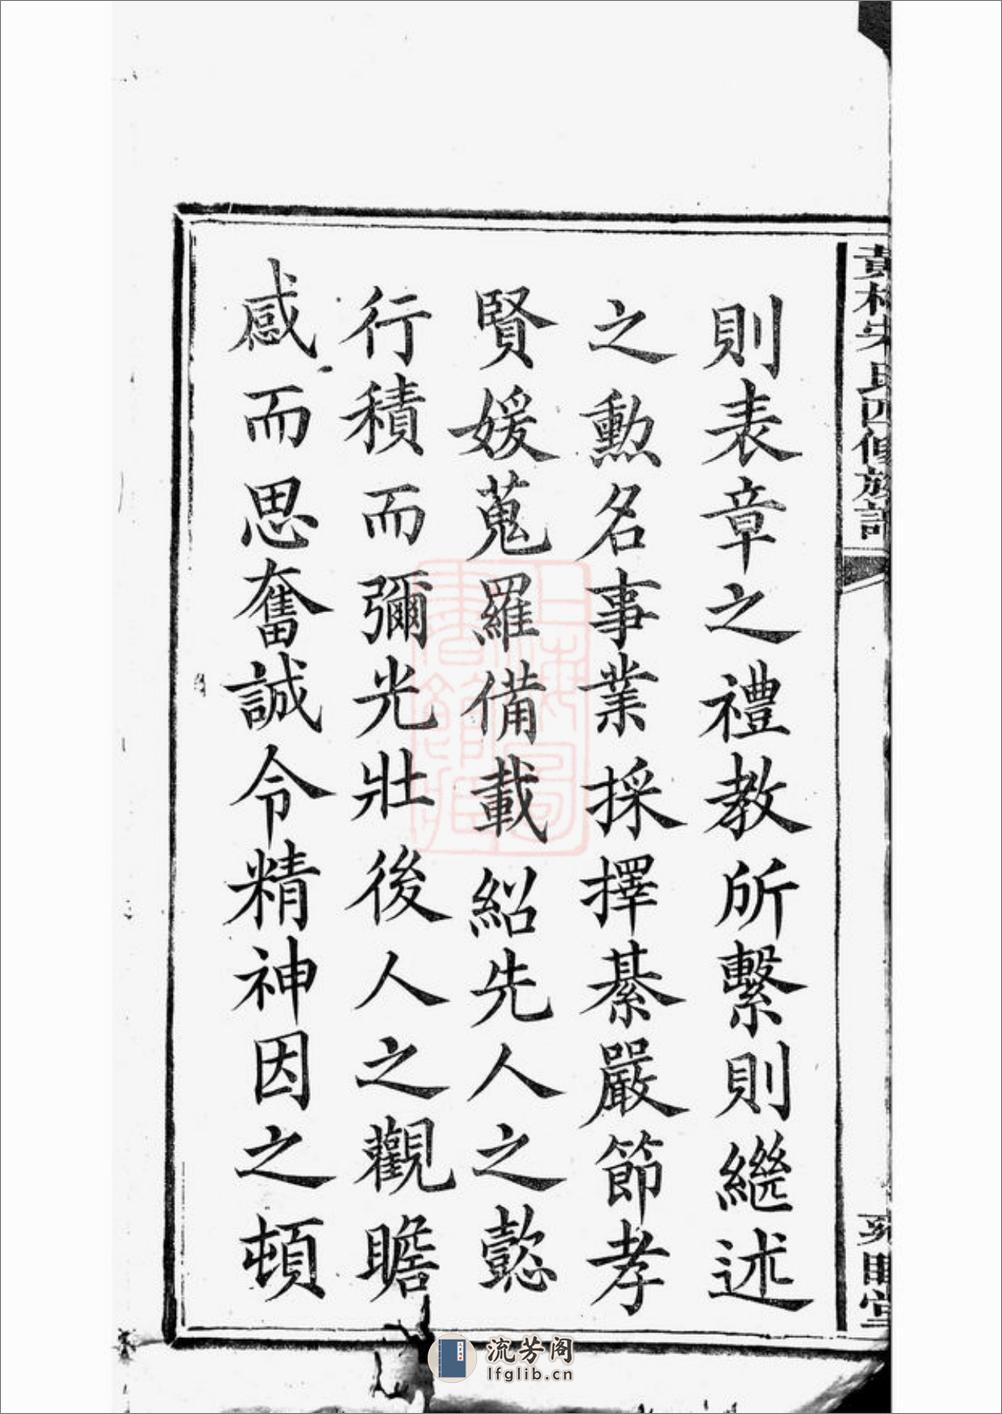 黃梅宋氏四修族譜
則表章之禮教所繫則繼述
之勲名事業採擇綦嚴節孝
賢媛蒐羅備載紹先人之懿
行積而彌光壯後人之觀瞻
感而思奮誠令精神因之頓
上海圖書館藏
流芳阁
lfglib.cn